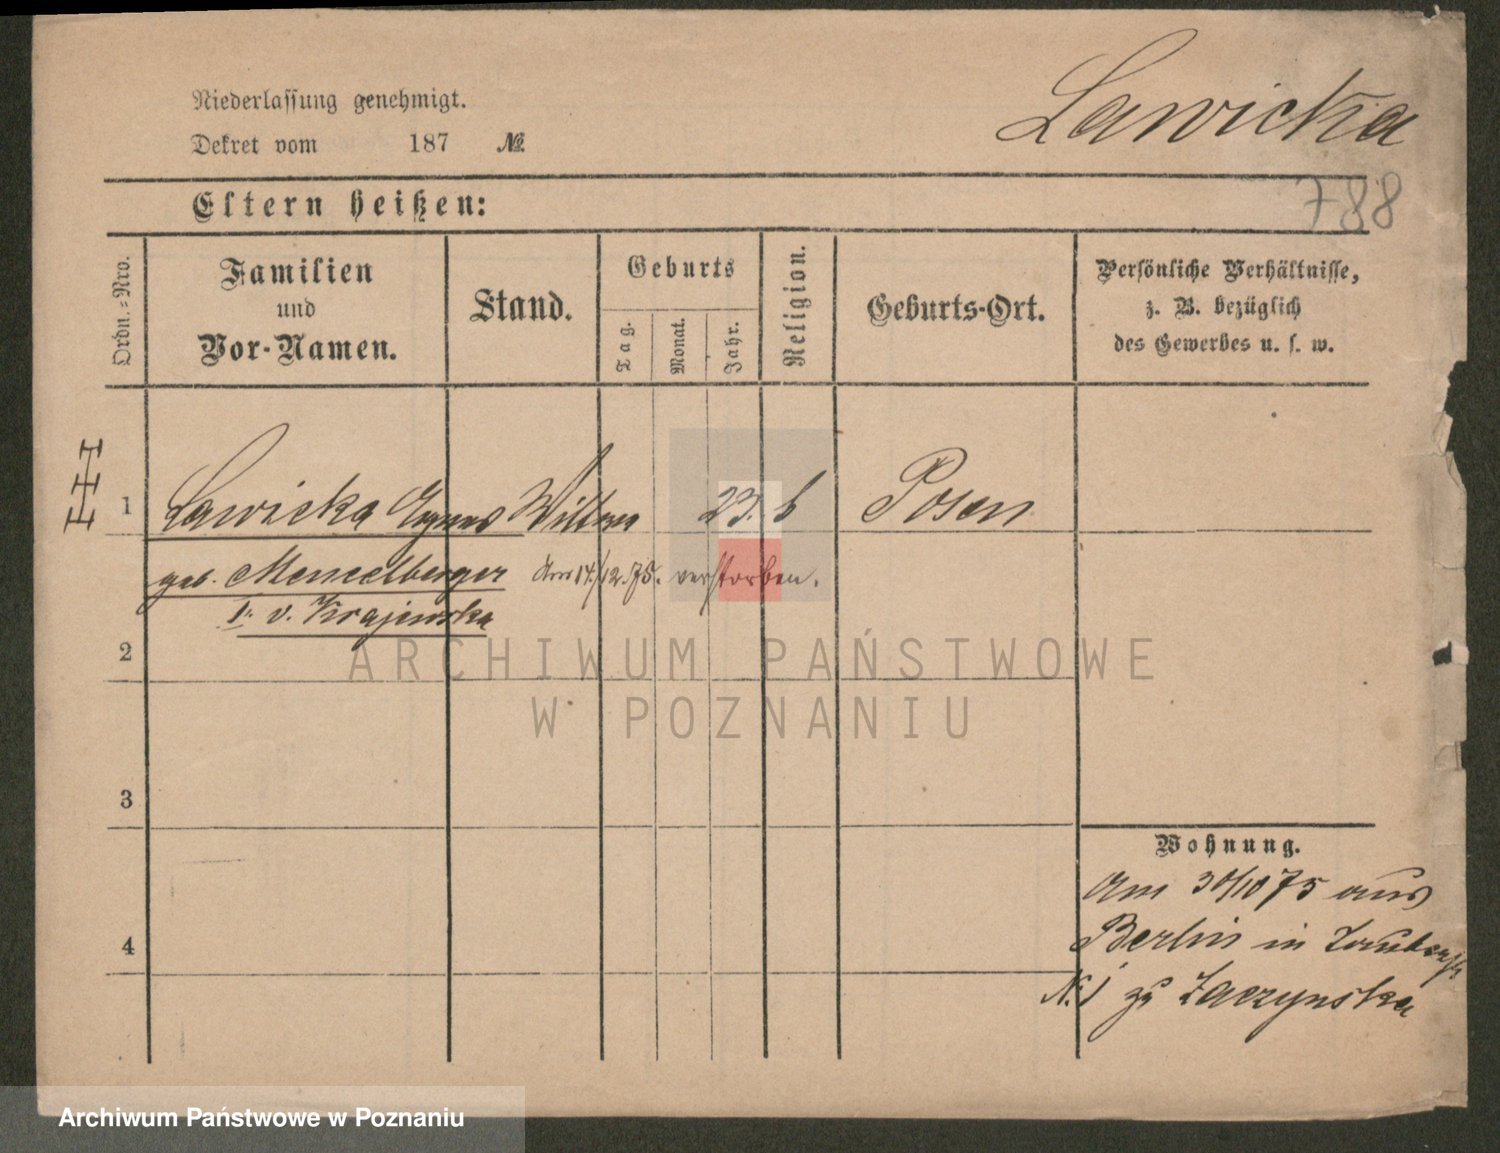 Niederlassung genehmigt.
Lawicka
Dekret vom 187 №
788
Eltern heißen:
Ordn.-Nro.
Familien
und
Vor-Namen.
Stand.
Geburts
Tag.
Monat.
Jahr.
Religion.
Geburts-Ort.
Persönliche Verhältnisse,
z. B. bezüglich
des Gewerbes u. s. w.
1 Lawicka Agnes Wittwe 23. 6 Posen
geb. Menzelberger Am 14./12.75. verstorben.
I. v. Krajewska
2
3
4
Wohnung.
Am 30/10 75 aus
Berlin in
N. 1 zu Zaczynska
ARCHIWUM PAŃSTWOWE
W POZNANIU
Archiwum Państwowe w Poznaniu